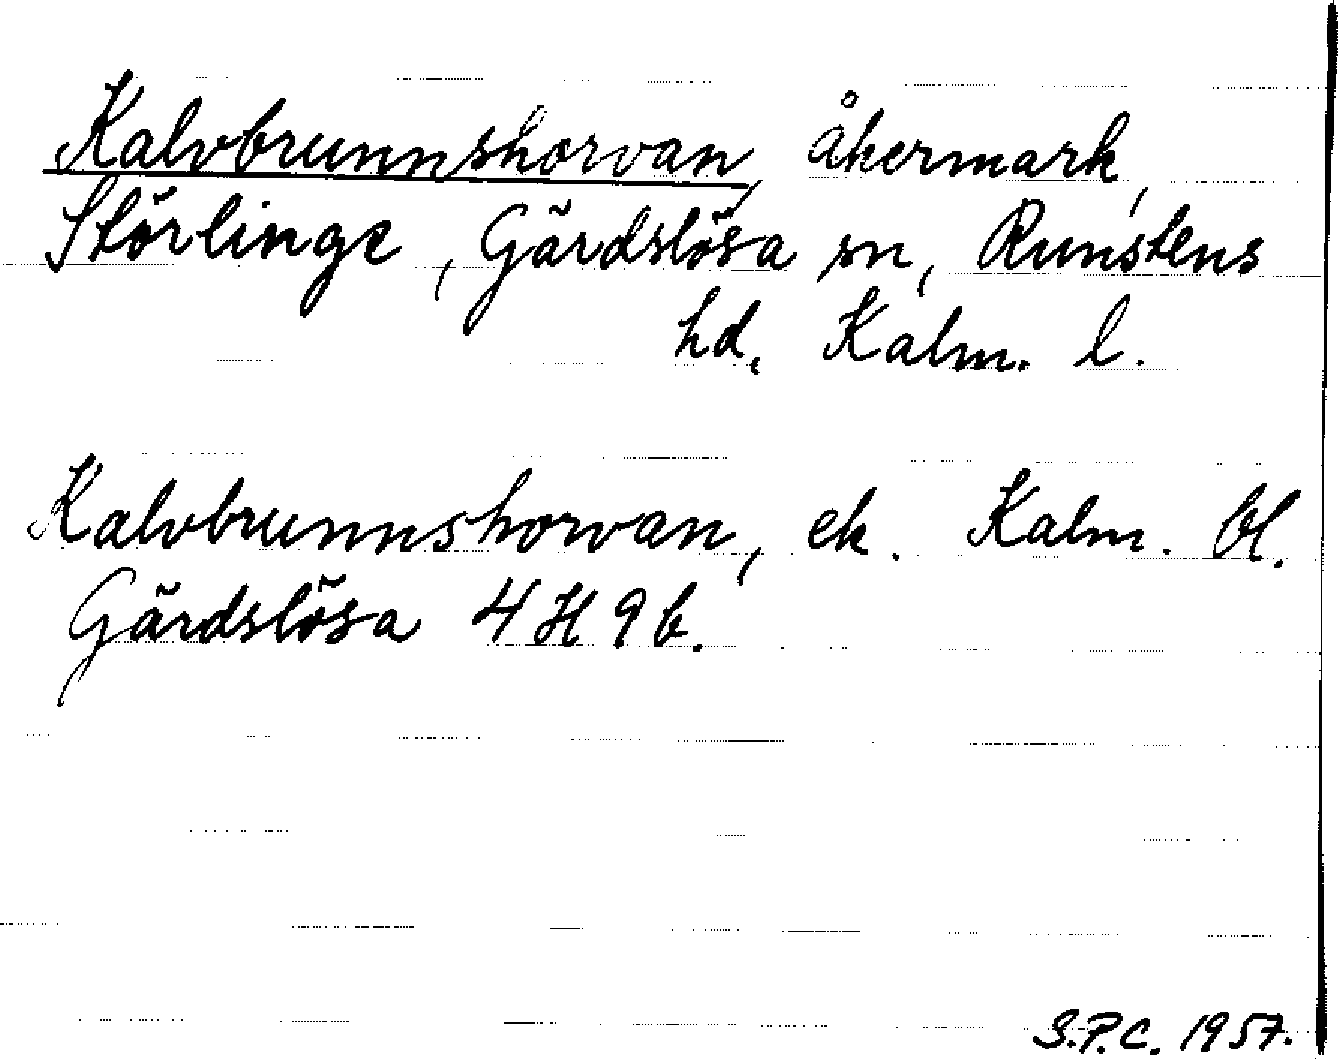 Kalvbrunnshorvan, åkermark,
Störlinge, Gärdslösa sn, Runstens
hd, Kalm. l.
Kalvbrunnshorvan, ek. Kalm. bl.
Gärdslösa 4H9b.
S.P.C. 1957.